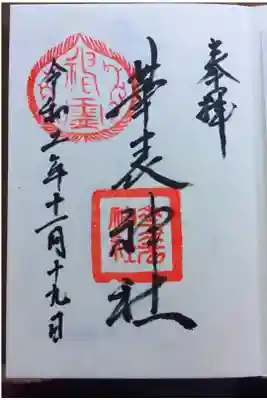 奉拝
華表神社
令和五年十一月十九日